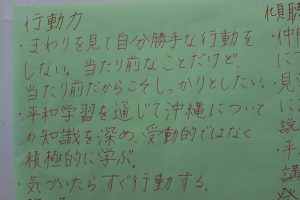 行動力
・まわりを見て自分勝手な行動を
しない。当たり前なことだけど、
当たり前だからこそしっかりとしたい。
・平和学習を通じて沖縄について
の知識を深め、受動的ではなく
積極的に学ぶ。
・気づいたらすぐ行動する。
傾聴
・仲
・見
説
・平
講